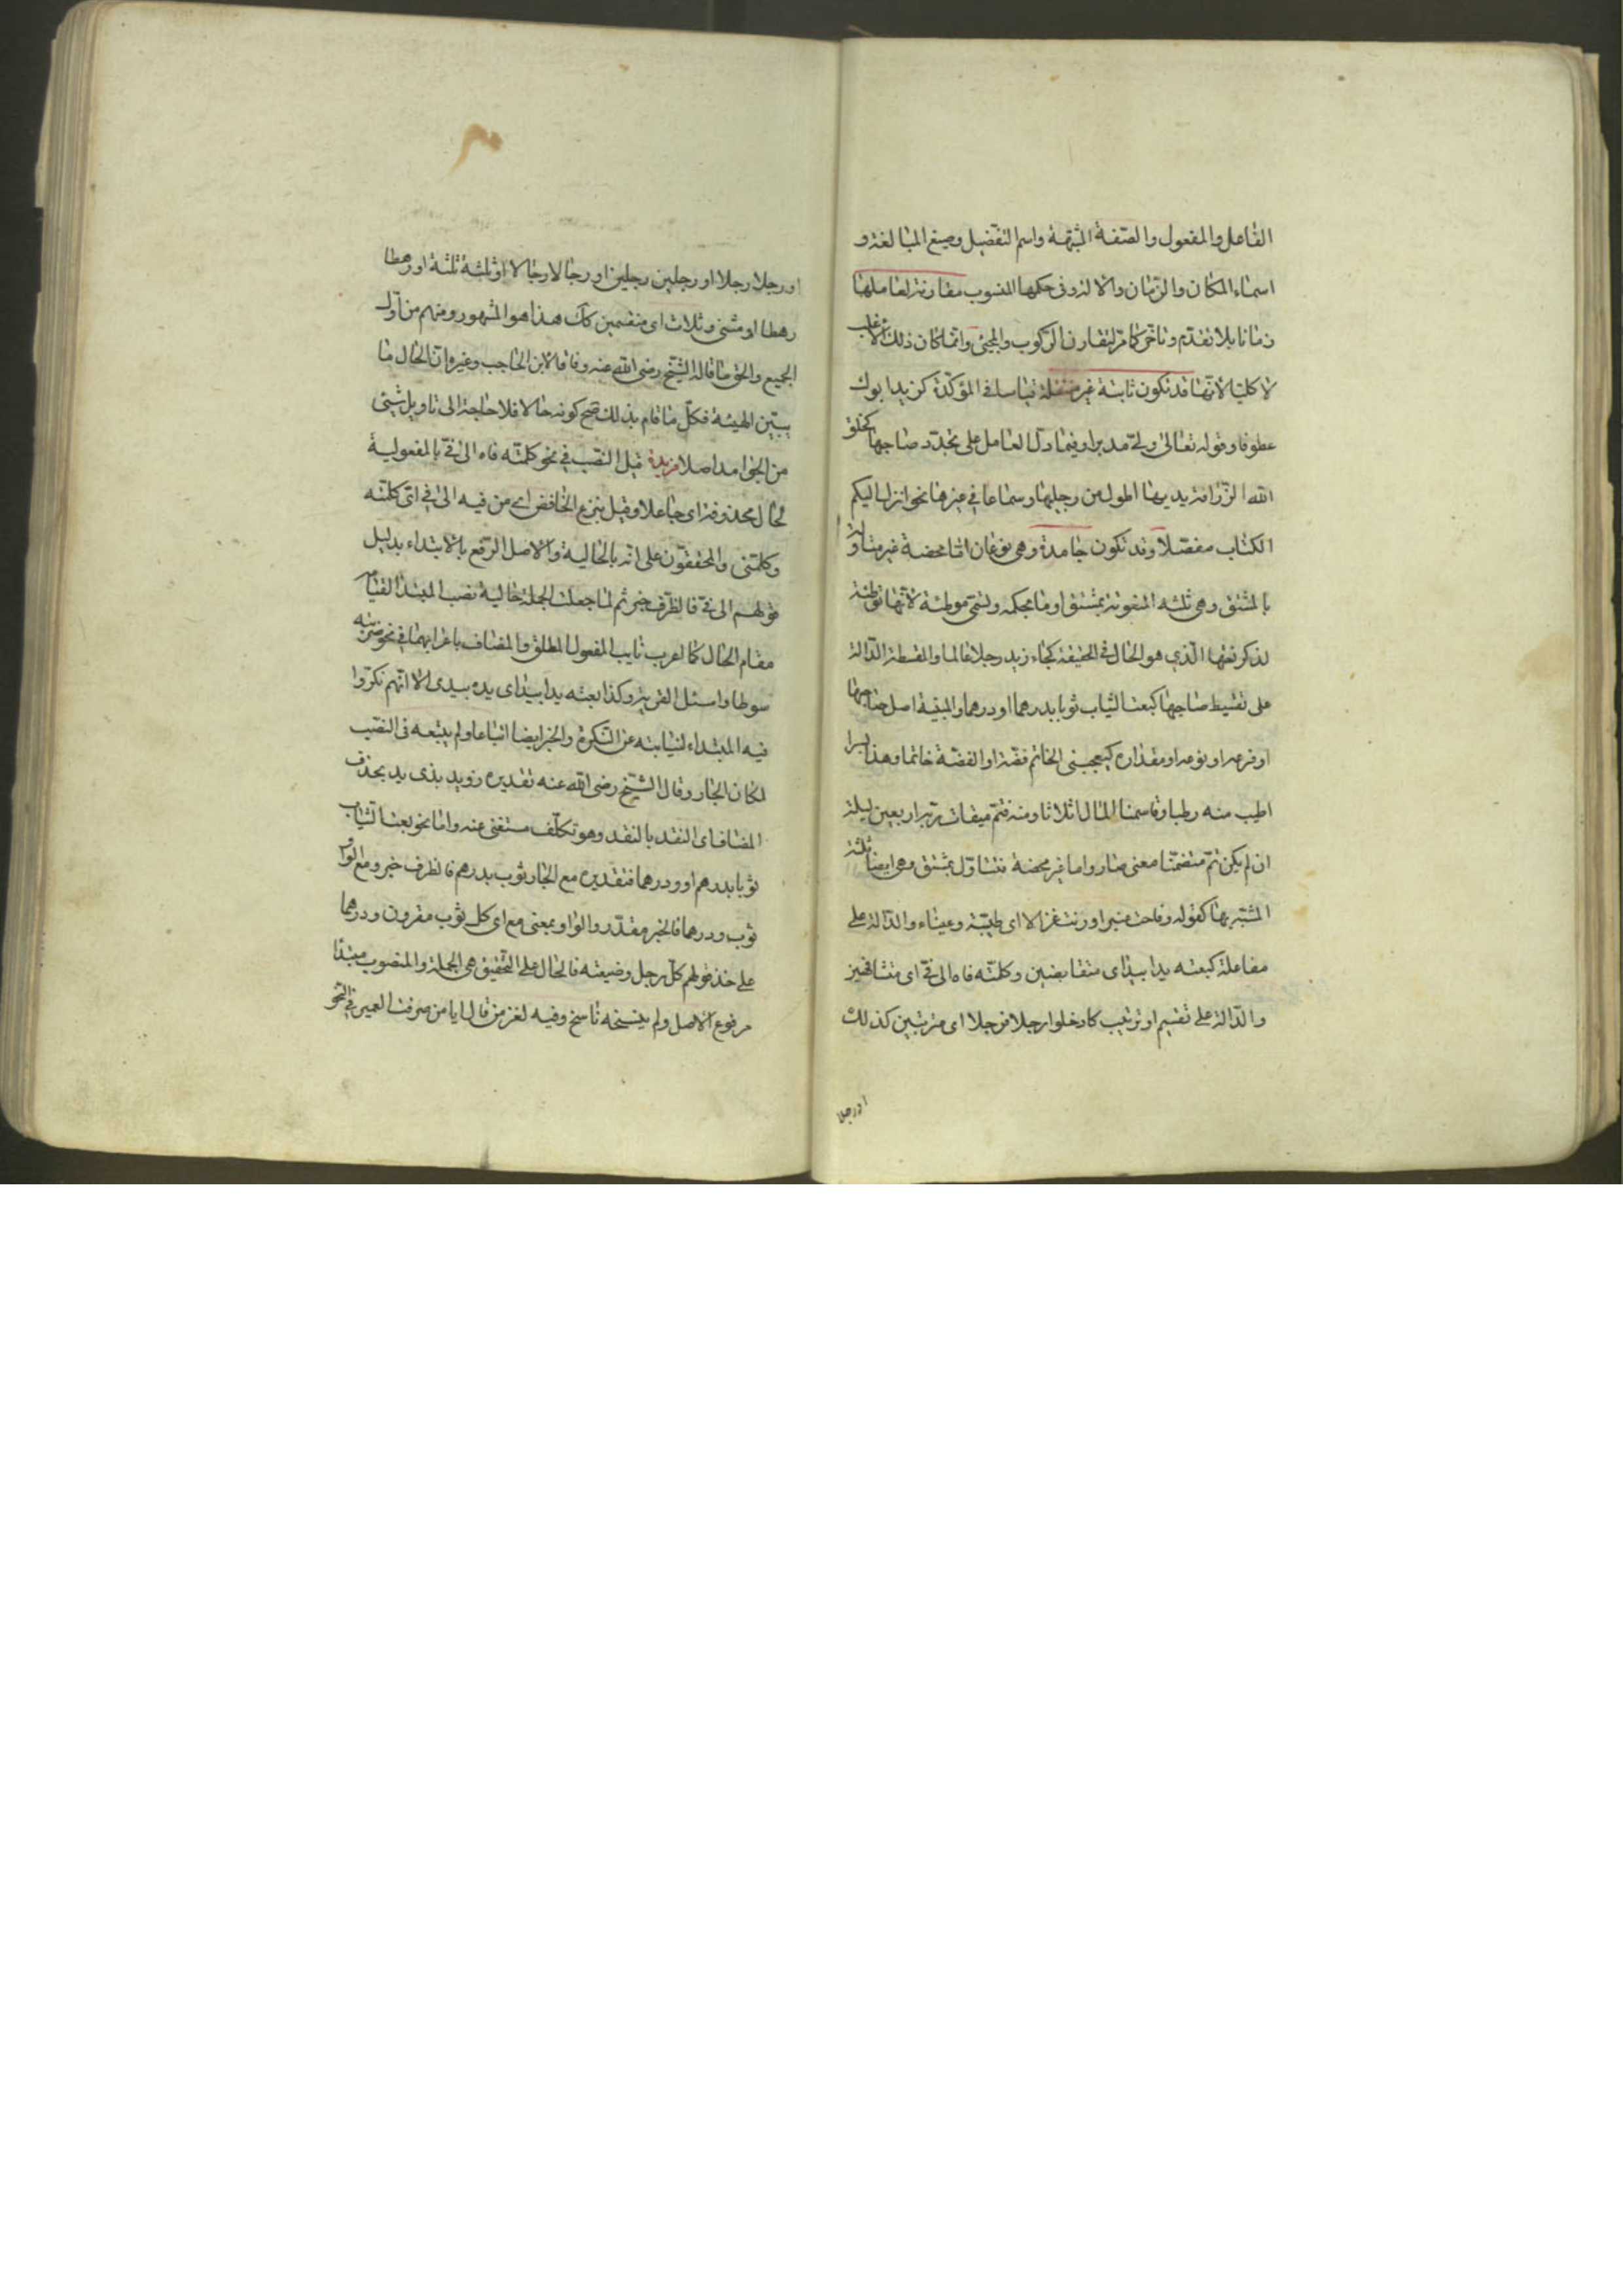 الفاعل والمفعول والصّفة المشبّهة واسم التفضيل وصيغ المبالغة و
اسماء المكان والزّمان والالة وفى حكمها المنسوب مقارنة لعاملها
زمانا بلا تقدّم وتاخّر كما مرّ لتقارن الركوب والمجئ وانّما كان ذلك الاغلب
لا كليّا لانّها قد تكون ثابتة غير منتقلة قياسا فى المؤكّدة كزيد ابوك
عطوفا وقوله تعالى ولّى مدبرا وفيما دلّ العامل على تجدّد صاحبها كخلق
الله الزّرافة يديها اطول من رجليها وسماعا فى غيرها نحو انزل اليكم
الكتاب مفصّلا وقد تكون جامدة وهى نوعان امّا محضة غير متاولة
بالمشتق وهى ثلثه المنعوتة بمشتق او ما بحكمه وتسمّى موطئة لانّها توطئة
لذكر نعتها الّذى هو الحال فى الحقيقة كجاء زيد رجلا عالما والمقسطة الدّالة
على تقسيط صاحبها كبعت الثياب ثوبا بدرهم او درهما والمبنية اصل صاحبها
او فرعه او نوعه او مقداره كيعجبنى الخاتم فضّة او الفضّة خاتما وهذا بسرا
اطيب منه رطبا وقاسمنا المال اثلاثا ومنه فتم ميقات ربّه اربعين ليلة
ان لم يكن تمّ متضمّنا معنى صار واما غير محضة تتناوّل بمشتق وهى ايضا ثلثة
المشبّه بها كقوله وفاحت عنبرا ورنت غزالا اى طيّبة وعيناء والدّالة على
مفاعلة كبعته يدا بيد اى متقابضين وكلمّته فاه الى فىّ اى متشافهين
والدّالة على تقسيم او ترتيب كادخلوا رجلا فرجلا اى مترتبين كذلك
او رجلا
او رجلا رجلا او رجلين رجلين او رجالا رجالا او ثلثة ثلثة او رهطا
رهطا او مثنى وثلاث اى منقسمين كك هذا هو المشهور ومنهم من اوّل
الجميع والحق ما قاله الشيّخ رضى الله عنه وفاقا لابن الحاجب وغيره انّ الحال ما
يبيّن الهيئة فكلّ ما قام بذلك صح كونه حالا فلا حاجة الى تاويل شئ
من الجوامد اصلا مزيدة قيل النصّب فى نحو كلمّته فاه الى فىّ بالمفعولية
لحال محذوفة اى جاعلا وقيل بنزع الخافض اى من فيه الى فى اى كلمّته
وكلمّنى والمحققّون على انّه بالحالية والاصل الرّفع بالابتداء بدليل
قولهم الى فىّ فالظّرف خبر ثم لما جعلت الجملة حالية نصب المبتدا لقيامه
مقام الحال كما اعرب نايب المفعول المطلق والمضاف باعرابهما فى نحو ضربته
سوطا واسئل القرية وكذا بعته يدا بيد اى يده بيدى الا انّهم نكرّوا
فيه المبتداء لنيابته عن النّكرة والخبر ايضا اتباعا ولم يتبعه فى النصب
لمكان الجار وقال الشيّخ رضى الله عنه تقديره زويد بذى يد بحذف
المضاف اى النقد بالنقد وهو تكلّف مستغنى عنه واما نحو بعت الثياب
ثوبا بدرهم او ودرهما فتقديره مع الجار ثوب بدرهم فالظرف خبر ومع الواو
ثوب ودرهما فالخبر مقدّر والواو بمعنى مع اى كل ثوب مقرون ودرهما
على حذ قولهم كلّ رجل وضيعته فالحال على التحّقيق هى الجملة والمنصوب مبتدا
مرفوع الاصل ولم ينسخه ناسخ وفيه لغز من قال ايا من صرفت العمر فى النحو